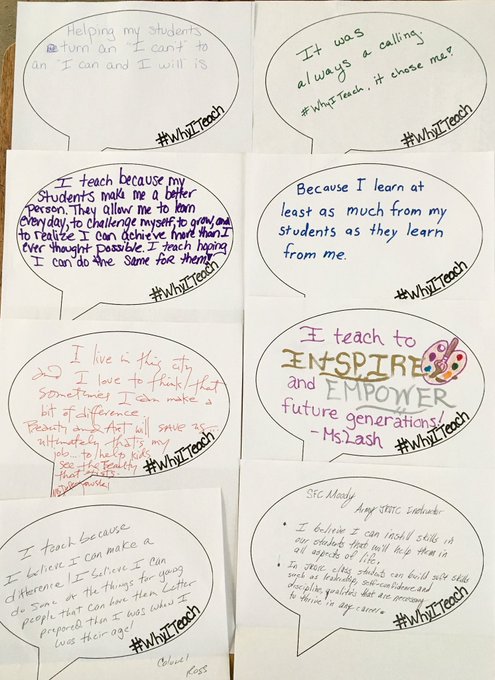 Helping my students
turn an "I can't" to
an "I can and I will is
#WhyITeach
It was
always a calling.
#WhyITeach, it chose me!
#WhyITeach
I teach because my
students make me a better
person. They allow me to learn
everyday, to challenge myself, to grow, and
to realize I can achieve more than I
ever thought possible. I teach hoping
I can do the same for them!
#WhyITeach
Because I learn at
least as much from my
students as they learn
from me.
#WhyITeach
I live in this city
and I love to think that
sometimes I can make a
bit of difference.
Beauty and Art will save us
ultimately, that's my
job... to help kids
see the beauty
that exists.
#WhyITeach
I teach to
INSPIRE
and
EMPOWER
future generations!
- Ms. Lash
#WhyITeach
I teach because
I believe I can make a
difference! I believe I can
do some of the things for young
people that can have them better
prepared than I was when I
was their age!
#WhyITeach
Colonel
Ross
SFC Moody
Army JROTC Instructor
• I believe I can instill skills in
our students that will help them in
all aspects of life.
• In JROTC class, students can build soft skills
such as leadership, self-confidence, and
discipline, qualities that are necessary
to thrive in any career.
#WhyITeach